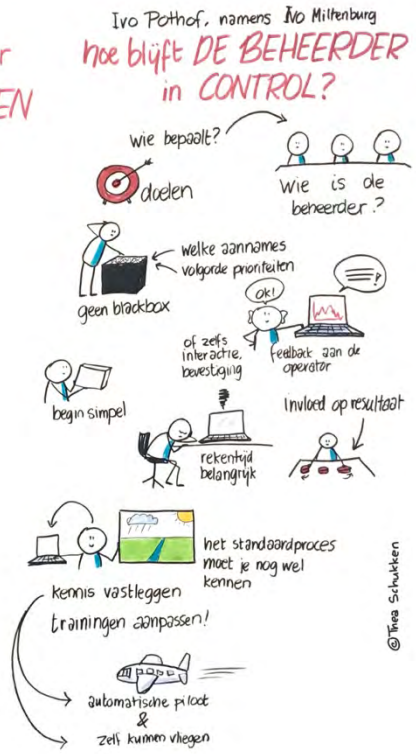 Ivo Pothof, namens Ivo Miltenburg
r
EN
hoe blijft DE BEHEERDER
in CONTROL?
wie bepaalt?
doelen
wie is de
beheerder?
welke aannames
volgorde prioriteiten
geen blackbox
OK!
?
of zelfs
interactie,
bevestiging
feedback aan de
operator
begin simpel
invloed op resultaat
rekentijd
belangrijk
het standaardproces
moet je nog wel
kennen
kennis vastleggen
trainingen aanpassen!
automatische piloot
&
zelf kunnen vliegen
©Thea Schukken